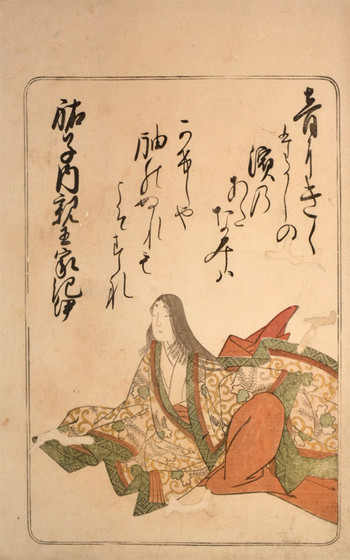 音にきく
たかしの
濱乃
あた
なみハ
かけしや
袖のぬれも
こそすれ
祐子内親王家紀伊